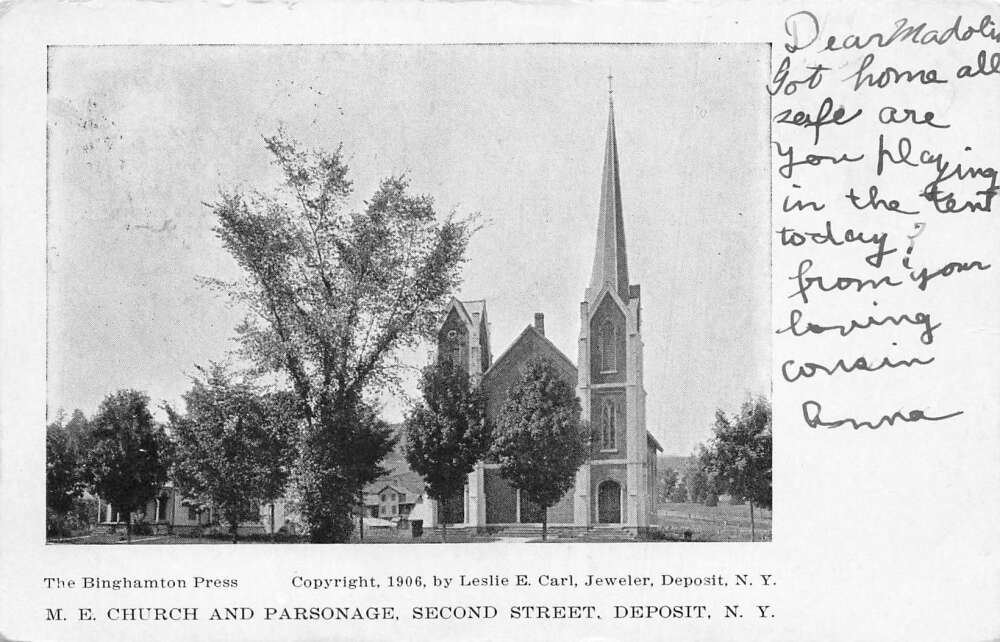 Dear Madolin
Got home all
safe are
you playing
in the tent
today?
from your
loving
cousin
Anna
The Binghamton Press Copyright, 1906, by Leslie E. Carl, Jeweler, Deposit, N. Y.
M. E. CHURCH AND PARSONAGE, SECOND STREET, DEPOSIT, N. Y.